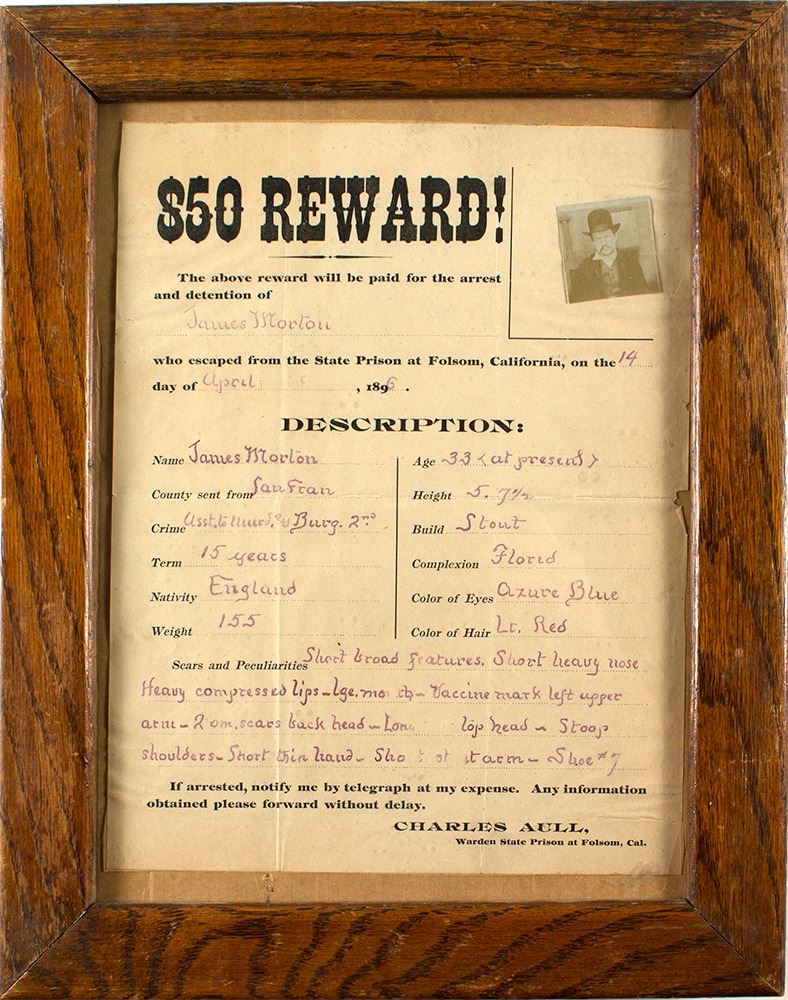 $50 REWARD!
The above reward will be paid for the arrest
and detention of
James Morton
who escaped from the State Prison at Folsom, California, on the 14
day of April, 1896.
DESCRIPTION:
Name James Morton
County sent from San Fran
Crime Asst. to Murd. & Burg. 2nd
Term 15 years
Nativity England
Weight 155
Age 33 (at present)
Height 5. 7½
Build Stout
Complexion Florid
Color of Eyes Azure Blue
Color of Hair Lt. Red
Scars and Peculiarities Short broad features. Short heavy nose
Heavy compressed lips - lge. - Vaccine mark left upper
arm - 2 sm. scars back head - Long top head - Stoop
shoulders - Short thin hand - arm - Shoe #7
If arrested, notify me by telegraph at my expense. Any information
obtained please forward without delay.
CHARLES AULL,
Warden State Prison at Folsom, Cal.